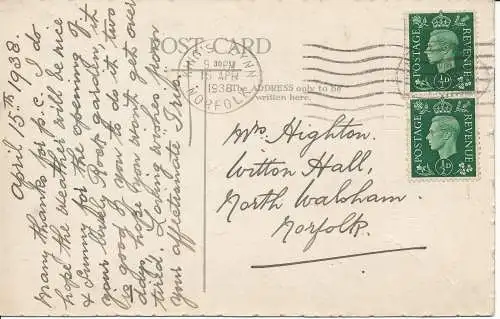 April 15th 1938.
many thanks for p.c. I do
hope the weather will be nice
& sunny for the opening of
your lovely Rock garden, it
is good of you to do it two
days, hope you wont get over
tired. Loving wishes from
your affectionate
POST CARD
KING'S LYNN
15 APR
1938
NORFOLK
The ADDRESS only to be
written here.
Mrs Highton.
Witton Hall,
North Walsham.
Norfolk.
POSTAGE REVENUE
½D
POSTAGE REVENUE
½D